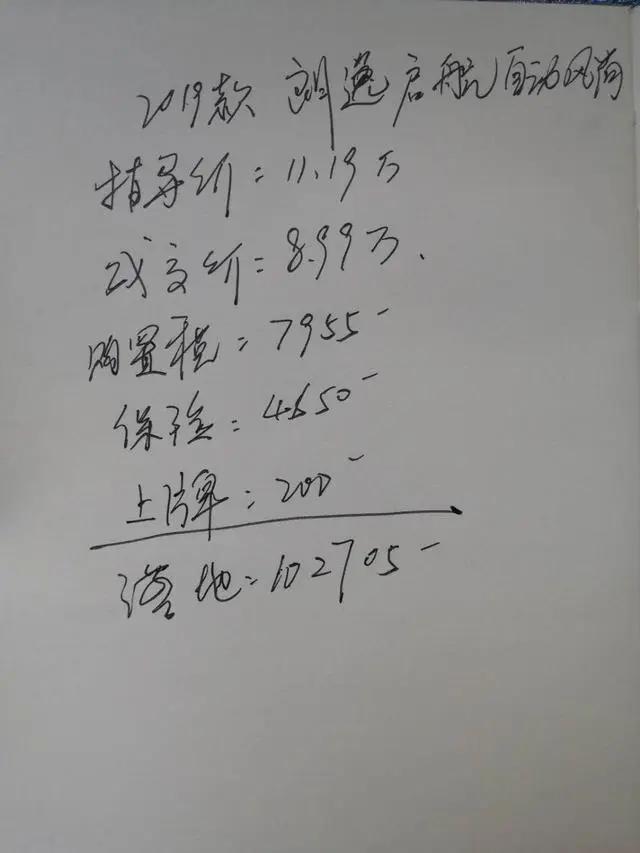 2019款 朗逸启航自动风尚
指导价:11.19万
成交价:8.99万.
购置税:7955-
保险:4650-
上牌:200-
落地:102705-